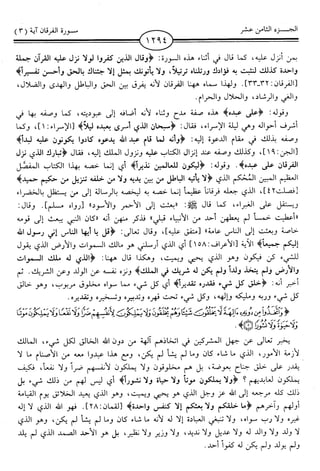 الجـــزء الثامن عشر
١٢٩٤
سورة الفرقان آية (٣)
بمن أنزل عليه، كما قال في أثناء هذه السورة: ﴿وقال الذين كفروا لولا نزل عليه القرآن جملة
واحدة كذلك لنثبت به فؤادك ورتلناه ترتيلاً، ولا يأتونك بمثل إلا جئناك بالحق وأحسن تفسيراً﴾
[الفرقان: ٣٢،٣٣]. ولهذا سماه ههنا الفرقان لأنه يفرق بين الحق والباطل والهدى والضلال،
والغي والرشاد، والحلال والحرام.
وقوله: ﴿على عبده﴾ هذه صفة مدح وثناء، لأنه أضافه إلى عبوديته، كما وصفه بها في
أشرف أحواله وهي ليلة الإسراء، فقال: ﴿سبحان الذي أسرى بعبده ليلاً﴾ [الإسراء: ١]، وكما
وصفه بذلك في مقام الدعوة إليه: ﴿وأنه لما قام عبد الله يدعوه كادوا يكونون عليه لبداً﴾
[الجن: ١٩]، وكذلك وصفه عند إنزال الكتاب عليه ونزول الملك إليه، فقال ﴿تبارك الذي نزل
الفرقان على عبده﴾. وقوله: ﴿ليكون للعالمين نذيراً﴾ أي إنما خصه بهذا الكتاب المفصل
العظيم المبين المحكم الذي ﴿لا يأتيه الباطل من بين يديه ولا من خلفه تنزيل من حكيم حميد﴾
[فصلت: ٤٢]، الذي جعله فرقاناً عظيماً إنما خصه به ليخصه بالرسالة إلى من يستظل بالخضراء،
ويستقل على الغبراء، كما قال ﷺ: «بعثت إلى الأحمر والأسود» [رواه مسلم]. وقال:
«أعطيت خمساً لم يعطهن أحد من الأنبياء قبلي» فذكر منهن أنه «كان النبي يبعث إلى قومه
خاصة وبعثت إلى الناس عامة» [متفق عليه]، وقال تعالى: ﴿قل يا أيها الناس إني رسول الله
إليكم جميعاً﴾ الآية [الأعراف: ١٥٨] أي الذي أرسلني هو مالك السموات والأرض الذي يقول
للشيء كن فيكون وهو الذي يحيي ويميت، وهكذا قال ههنا: ﴿الذي له ملك السموات
والأرض ولم يتخذ ولداً ولم يكن له شريك في الملك﴾ ونزه نفسه عن الولد وعن الشريك. ثم
أخبر أنه: ﴿خلق كل شيء فقدره تقديراً﴾ أي كل شيء مما سواه مخلوق مربوب، وهو خالق
كل شيء وربه ومليكه وإلهه، وكل شيء تحت قهره وتدبيره وتسخيره وتقديره.
﴿وَاتَّخَذُوا مِن دُونِهِ آلِهَةً لَّا يَخْلُقُونَ شَيْئًا وَهُمْ يُخْلَقُونَ وَلَا يَمْلِكُونَ لِأَنفُسِهِمْ ضَرًّا وَلَا نَفْعًا وَلَا يَمْلِكُونَ مَوْتًا
وَلَا حَيَاةً وَلَا نُشُورًا ﴾
يخبر تعالى عن جهل المشركين في اتخاذهم آلهة من دون الله الخالق لكل شيء، المالك
لأزمة الأمور، الذي ما شاء كان وما لم يشأ لم يكن، ومع هذا عبدوا معه من الأصنام ما لا
يقدر على خلق جناح بعوضة، بل هم مخلوقون ولا يملكون لأنفسهم ضراً ولا نفعاً، فكيف
يملكون لعابديهم؟ ﴿ولا يملكون موتاً ولا حياة ولا نشوراً﴾ أي ليس لهم من ذلك شيء بل
ذلك كله مرجعه إلى الله عز وجل الذي هو يحيي ويميت، وهو الذي يعيد الخلائق يوم القيامة
أولهم وآخرهم ﴿ما خلقكم ولا بعثكم إلا كنفس واحدة﴾ [لقمان: ٢٨]. فهو الله الذي لا إله
غيره ولا رب سواه، ولا تنبغي العبادة إلا له لأنه ما شاء كان وما لم يشأ لم يكن، وهو الذي
لا ولد ولا والد له ولا عديل ولا نديد، ولا وزير ولا نظير، بل هو الأحد الصمد الذي لم يلد
ولم يولد ولم يكن له كفواً أحد.